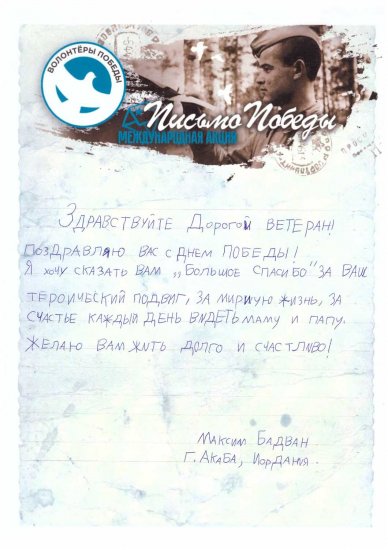 ВОЛОНТЁРЫ ПОБЕДЫ
Письмо Победы
МЕЖДУНАРОДНАЯ АКЦИЯ
ЗДРАВСТВУЙТЕ ДОРОГОЙ ВЕТЕРАН!
ПОЗДРАВЛЯЮ ВАС С ДНЕМ ПОБЕДЫ!
Я ХОЧУ СКАЗАТЬ ВАМ „БОЛЬШОЕ СПАСИБО" ЗА ВАШ
ГЕРОИЧЕСКИЙ ПОДВИГ, ЗА МИРНУЮ ЖИЗНЬ, ЗА
СЧАСТЬЕ КАЖДЫЙ ДЕНЬ ВИДЕТЬ МАМУ И ПАПУ.
ЖЕЛАЮ ВАМ ЖИТЬ ДОЛГО И СЧАСТЛИВО!
МАКСИМ БАДВАН
Г. АКАБА, ИОРДАНИЯ.